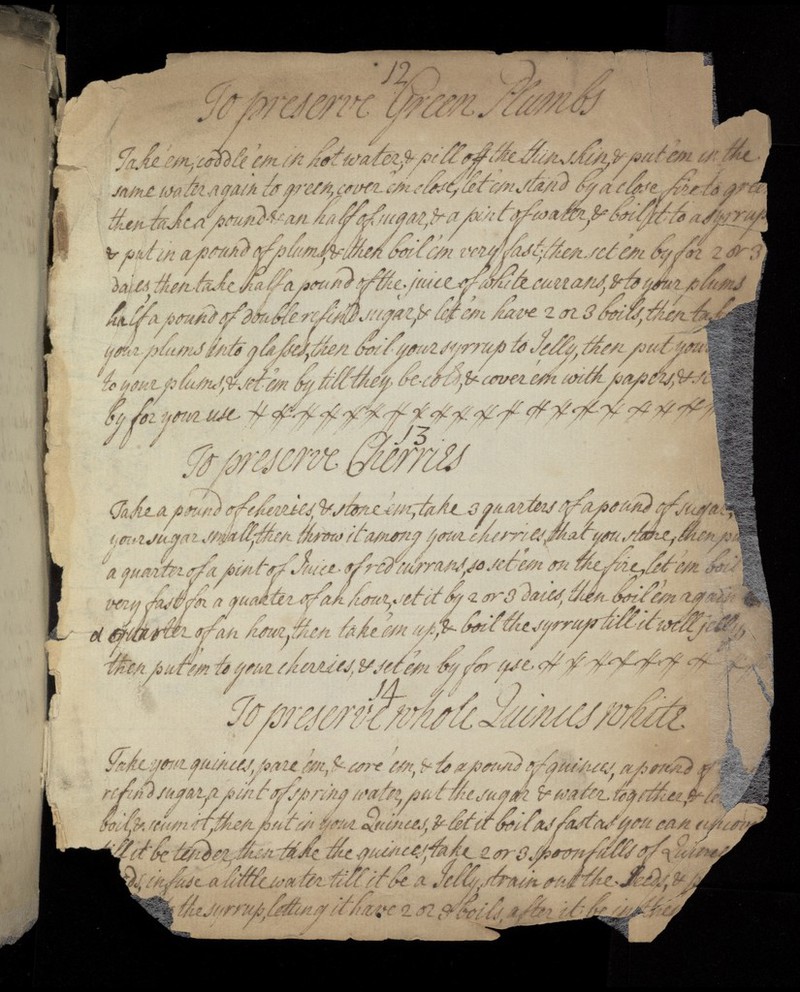 12
To preserve Green Plumbs
Take 'em, coddle 'em in hot water, & pill off the thin skin, & put 'em in the
same water again to green, cover 'em close, let 'em stand by a close fire to gree
then take a pound & an half of sugar, & a pint of water, & boil it to a syrrup
& put in a pound of plums, & then boil 'em very fast, then set em by for 2 or 3
daies then take half a pound of the juice of white currans, & to your plums
half a pound of double refin'd sugar, & let 'em have 2 or 3 boils, then tak
your plums into glasses, then boil your syrrup to Jelly, then put your
to your plums, & set 'em by till they be cold, & cover em with papers, & s
by for your use
13
To preserve Cherries
Take a pound of cherries, & stone 'em, take 3 quarters of a pound of sugar,
your sugar small, then throw it among your cherries, that you stone, then pu
a quarter of a pint of Juice of red currans, so set 'em on the fire, let 'em boil
very fast for a quarter of an hour, set it by 2 or 3 daies, then boil 'em again
a quarter of an hour, then take 'em up, & boil the syrrup till it will jelly,
then put 'em to your cherries, & set 'em by for use
14
To preserve whole Quinces white
Take your quinces, pare 'em, & core 'em, & to a pound of quinces, a pound of
refind sugar, a pint of spring water, put the sugar & water together, & le
boil, & scum it, then put in your Quinces, & let it boil as fast as you can upcov
till it be tender, then take the quinces, take 2 or 3 spoonfulls of Quince
ds, infuse a little water till it be a Jelly, strain out the Seeds, &
the syrrup, letting it have 2 or 3 boils, after it be in